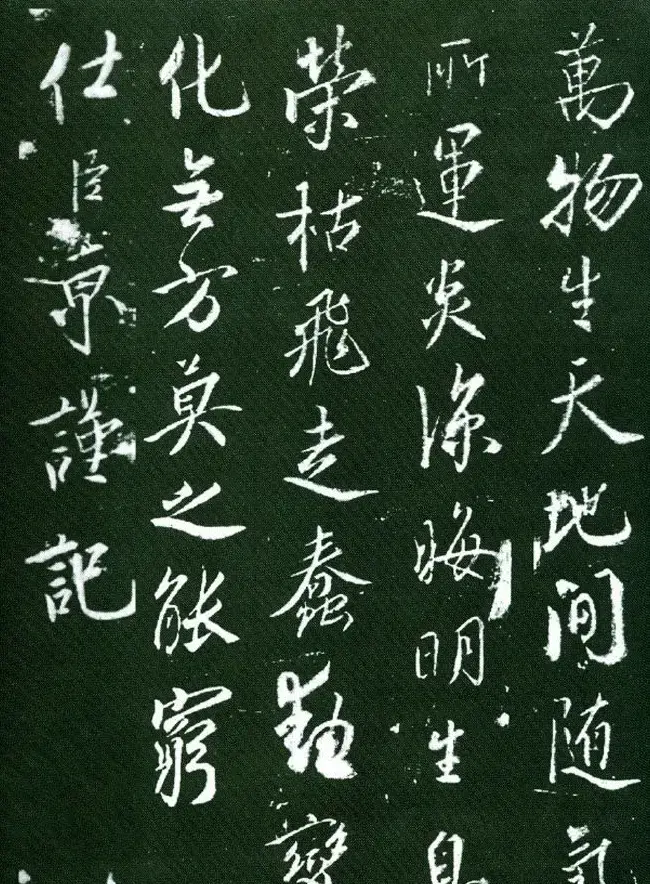 萬物生天地間随氣
所運炎涼晦明生息
榮枯飛走蠢動變
化無方莫之能窮
仕臣京謹記